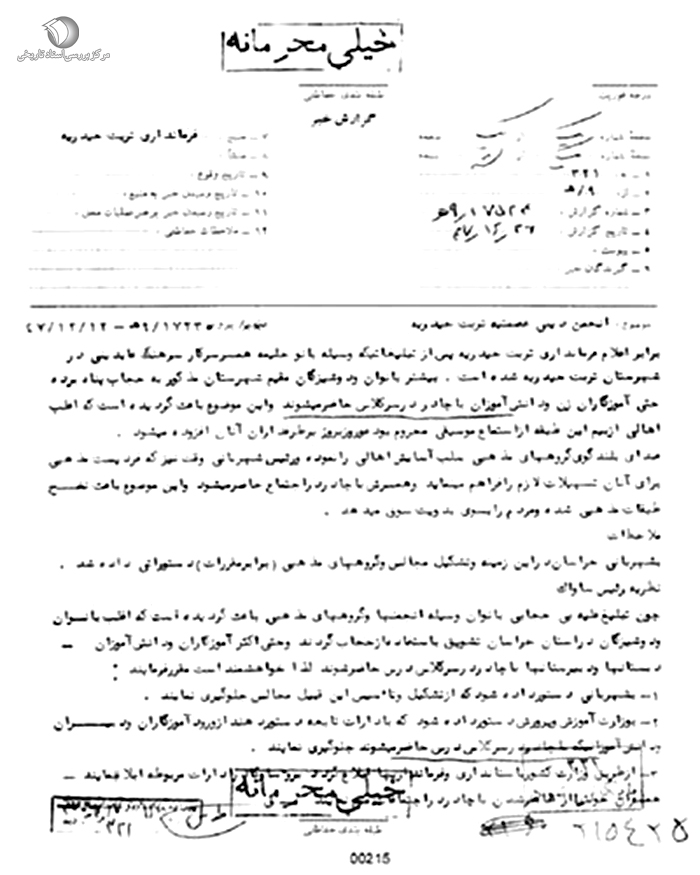 مرکز بررسی اسناد تاریخی
خیلی محرمانه
درجه فوریت
طبقه بندی حفاظتی
گزارش خبر
صفحهٔ شماره از صفحه
۱ – به ۳۲۱
۲ – از ۹/ﻫ
۳ – شماره گزارش
۴ – تاریخ گزارش
۵ – پیوست
۶ – گیرندگان خبر
۷ – منبع فرمانداری تربت حیدریه
۸ – منشأ
۹ – تاریخ وقوع
۱۰ – تاریخ رسیدن خبر به منبع
۱۱ – تاریخ رسیدن خبر به رهبر عملیات محل
۱۲ – ملاحظات حفاظتی
موضوع : انجمن دینی عصمتیه تربت حیدریه
۴۷/۱۲/۱۲ – ۹/۱۷۲۳ﻫ
برابر اعلام فرمانداری تربت حیدریه پس از تبلیغاتیکه وسیله بانو حلیمه همسر سرکار سرهنگ عابدینی در
شهرستان تربت حیدریه شده است . بیشتر بانوان و دوشیزگان مقیم شهرستان مذکور به حجاب پناه برده
حتی آموزگاران زن و دانش آموزان با چادر در سر کلاس حاضر میشوند و این موضوع باعث گردیده است که اغلب
اهالی از بیم این طبقه از استماع موسیقی محروم بوده و روز بروز بر طرفداران آنان افزوده میشود .
صدای بلند گوی گروههای مذهبی سلب آسایش اهالی را نموده و رئیس شهربانی وقت نیز که مردیست مذهبی
برای آنان تسهیلات لازم را فراهم مینماید و همسرش با چادر در اجتماع حاضر میشود و این موضوع باعث تهییج
طبقات مذهبی شده و مردم را بسوی بدویت سوق میدهد .
ملاحظات
بشهربانی خراسان در این زمینه و تشکیل مجالس و گروههای مذهبی (برابر مقررات) دستوراتی داده شد .
نظریه رئیس ساواک
چون تبلیغ علیه بی حجابی بانوان وسیله انجمنها و گروههای مذهبی باعث گردیده است که اغلب بانوان
و دوشیزگان در استان خراسان تشویق باستفاده از حجاب گردند و حتی اکثر آموزگاران و دانش آموزان –
دبستانها و دبیرستانها با چادر در سر کلاس درس حاضر شوند لذا خواهشمند است مقرر فرمایند :
۱– بشهربانی دستور داده شود که از تشکیل و تاسیس این قبیل مجالس جلوگیری نمایند .
۲– بوزارت آموزش و پرورش دستور داده شود که بادارات تابعه دستور دهند از ورود آموزگاران و دبیران
و دانش آموزانیکه با چادر در سر کلاس درس حاضر میشوند جلوگیری نمایند .
۳– از طریق وزارت کشور باستانداری و فرمانداریها ابلاغ گردد بروسای ادارات مربوطه ابلاغ نمایند –
همسران خود را از حاضر شدن با چادر در اجتماعات
خیلی محرمانه
طبقه بندی حفاظتی
۳۲۱
۲۱۵۴۲۵
00215